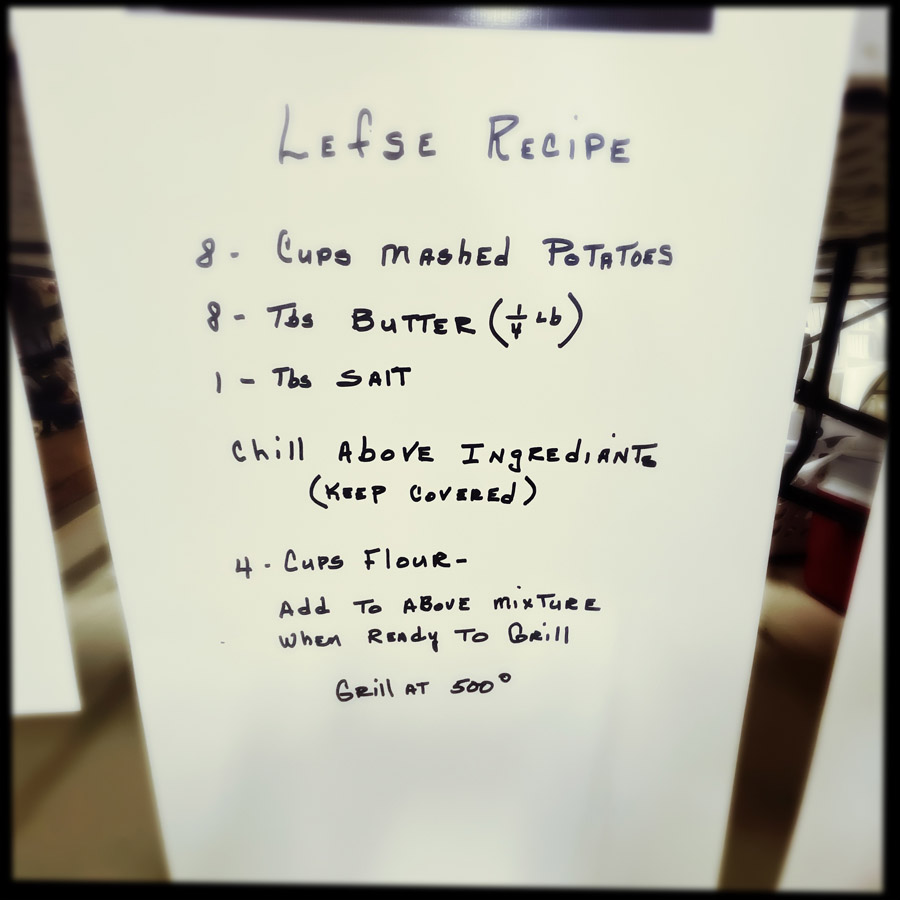 Lefse Recipe
8 - Cups Mashed Potatoes
8 - Tbs Butter (1/4 Lb)
1 - Tbs Salt
Chill Above Ingrediants
(Keep Covered)
4 - Cups Flour -
Add To Above Mixture
When Ready To Grill
Grill at 500°